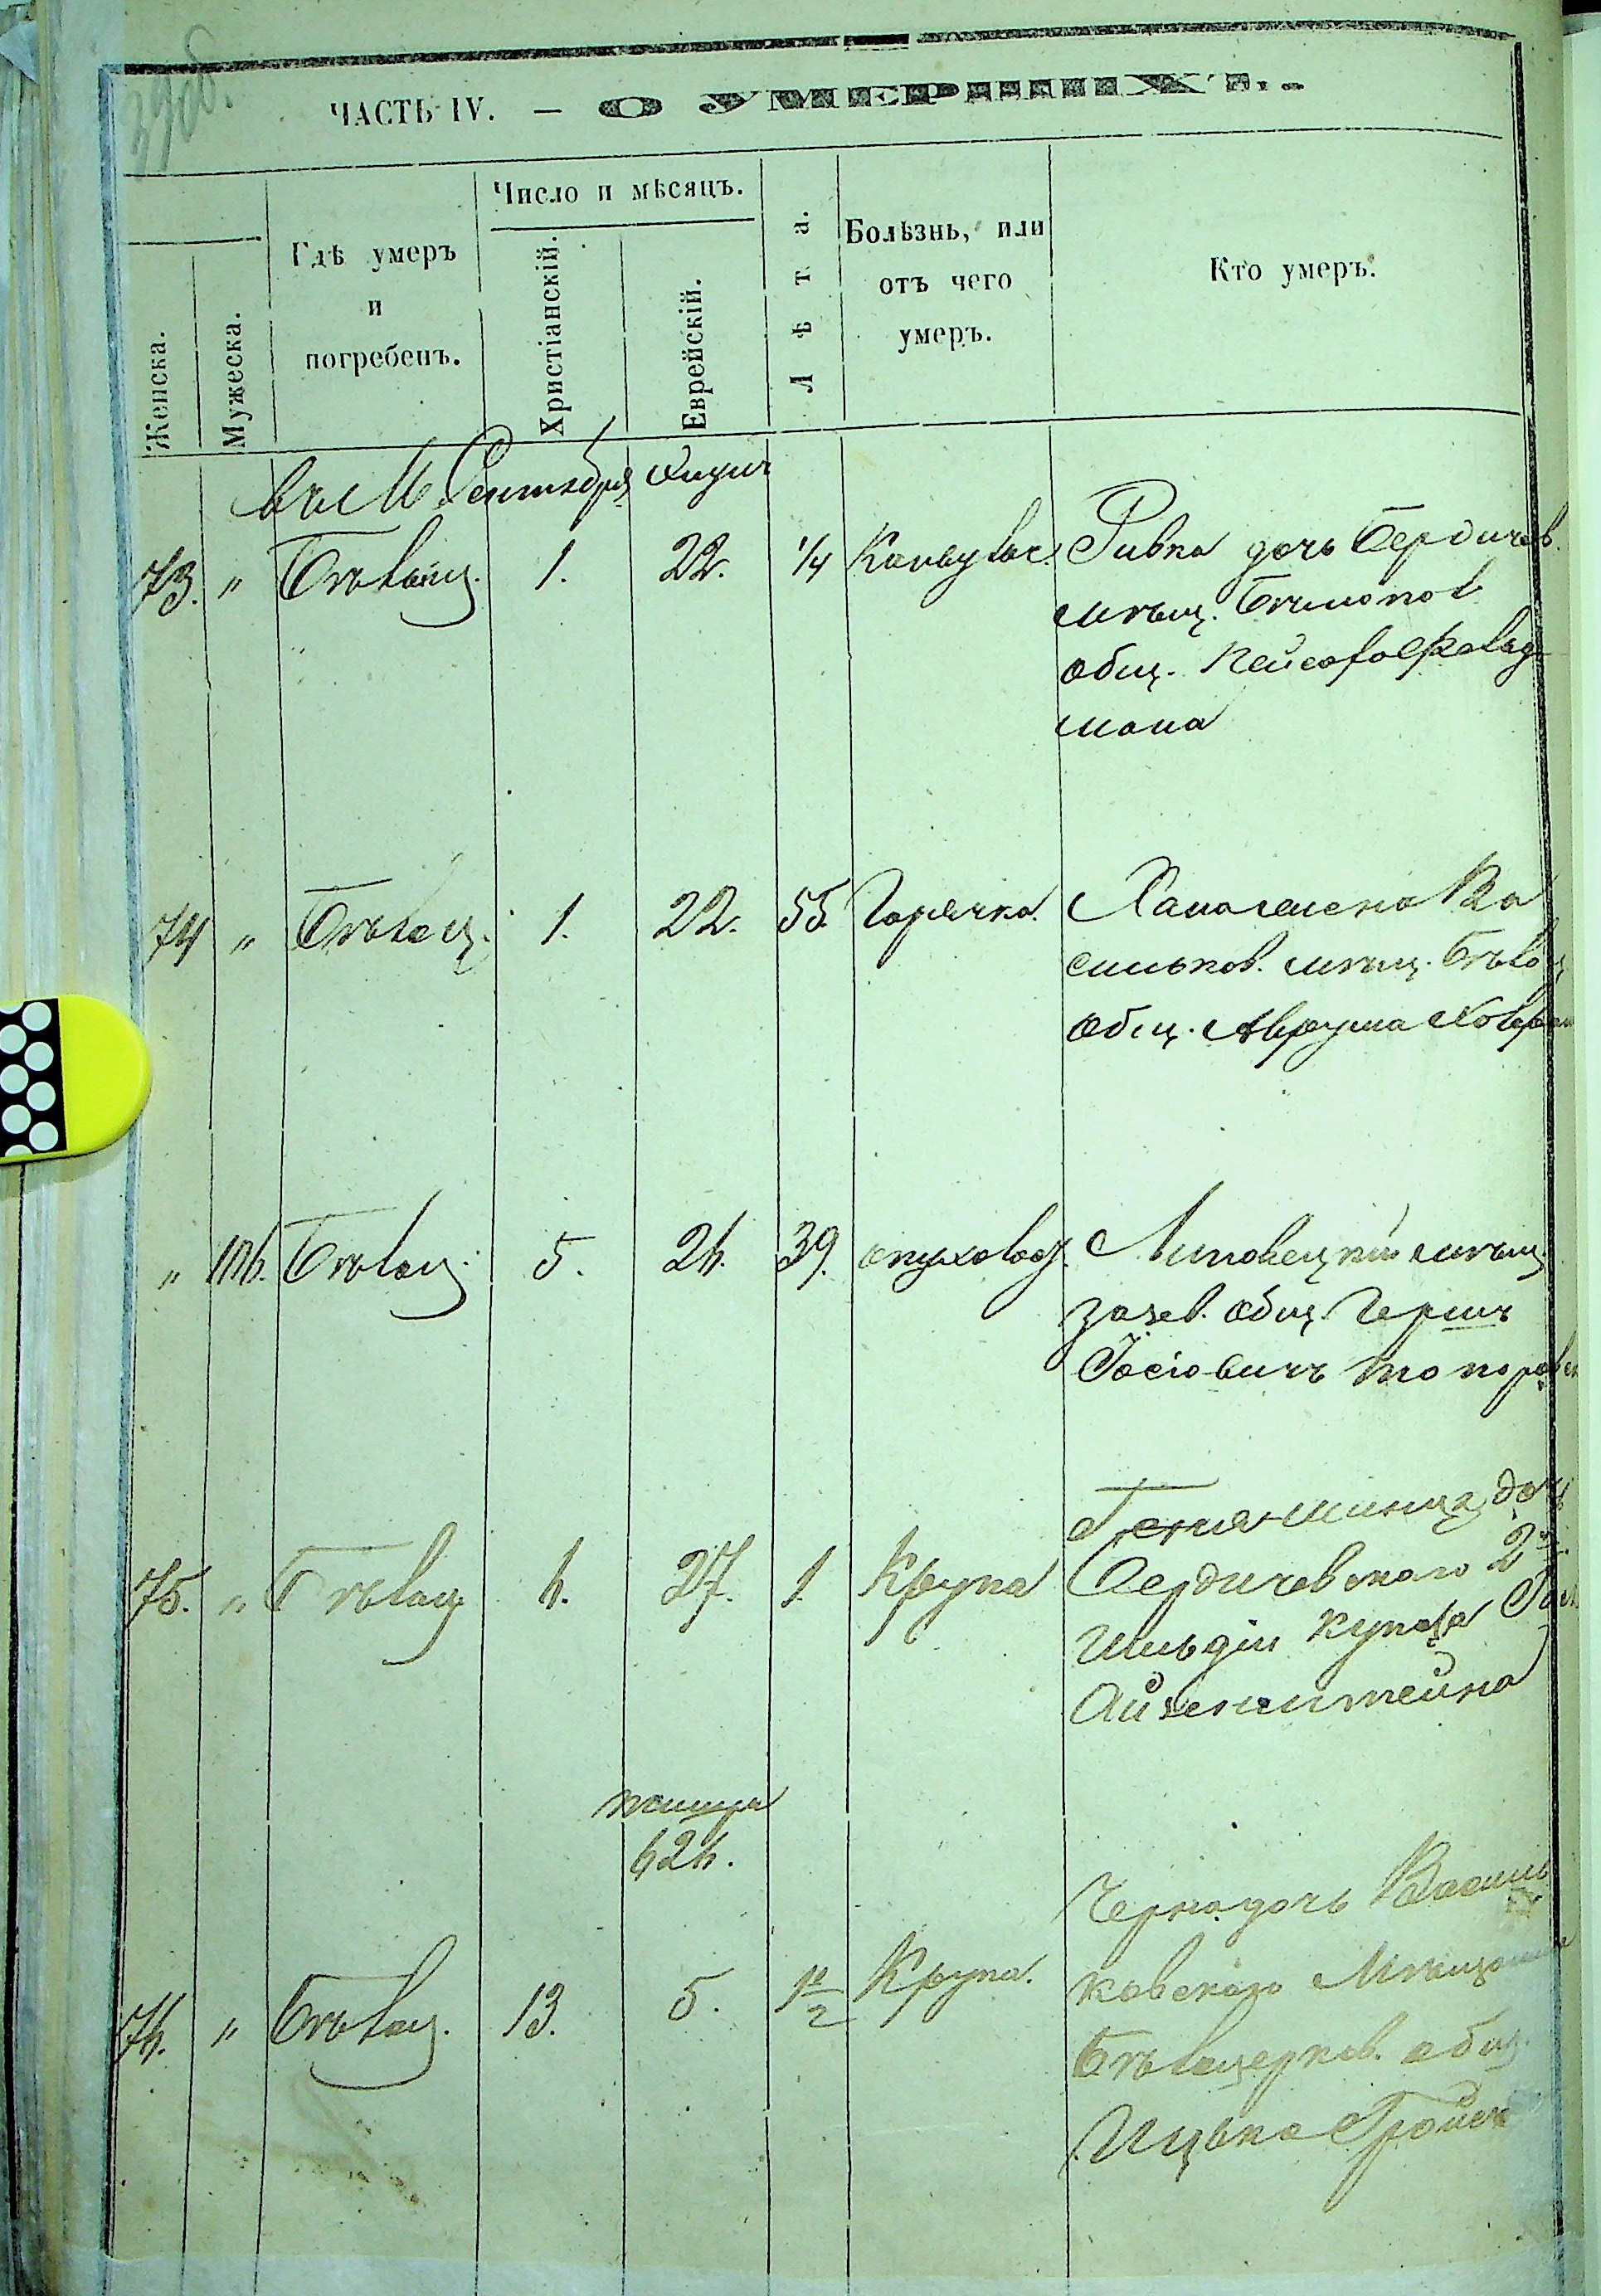 39об.
ЧАСТЬ IV. — О УМЕРШИХЪ.
Женска.
Мужеска.
Гдѣ умеръ
и
погребенъ.
Число и мѣсяцъ.
Христіанскій.
Еврейскій.
Лѣта.
Болѣзнь, или
отъ чего
умеръ.
Кто умеръ.
въ М. Сентября
73. " Бѣлоц. 1. 22. 1/4 Конвульс. Ривка дочь Бердичев.
мѣщ.
общ.
мана
74 " Бѣлоц. 1. 22. 55. Горячка. Хана жена Ва
сильков. мѣщ. Бѣлоц
общ. Аврума
" 106. Бѣлоц. 5. 26. 39. Липовецкій мѣщ.
общ. Герш
Іосіовичъ Топоров
75. " Бѣлоц 6. 27. 1. Крупа дочь
Бердичевскаго 2й
Гильдіи купца
Айзенштейна
тишри
626.
76. " Бѣлоц. 13. 5. 1 1/2 Крупа. Черна дочь Василь
ковскаго Мѣщан
Бѣлоцерков. общ.
Ицька